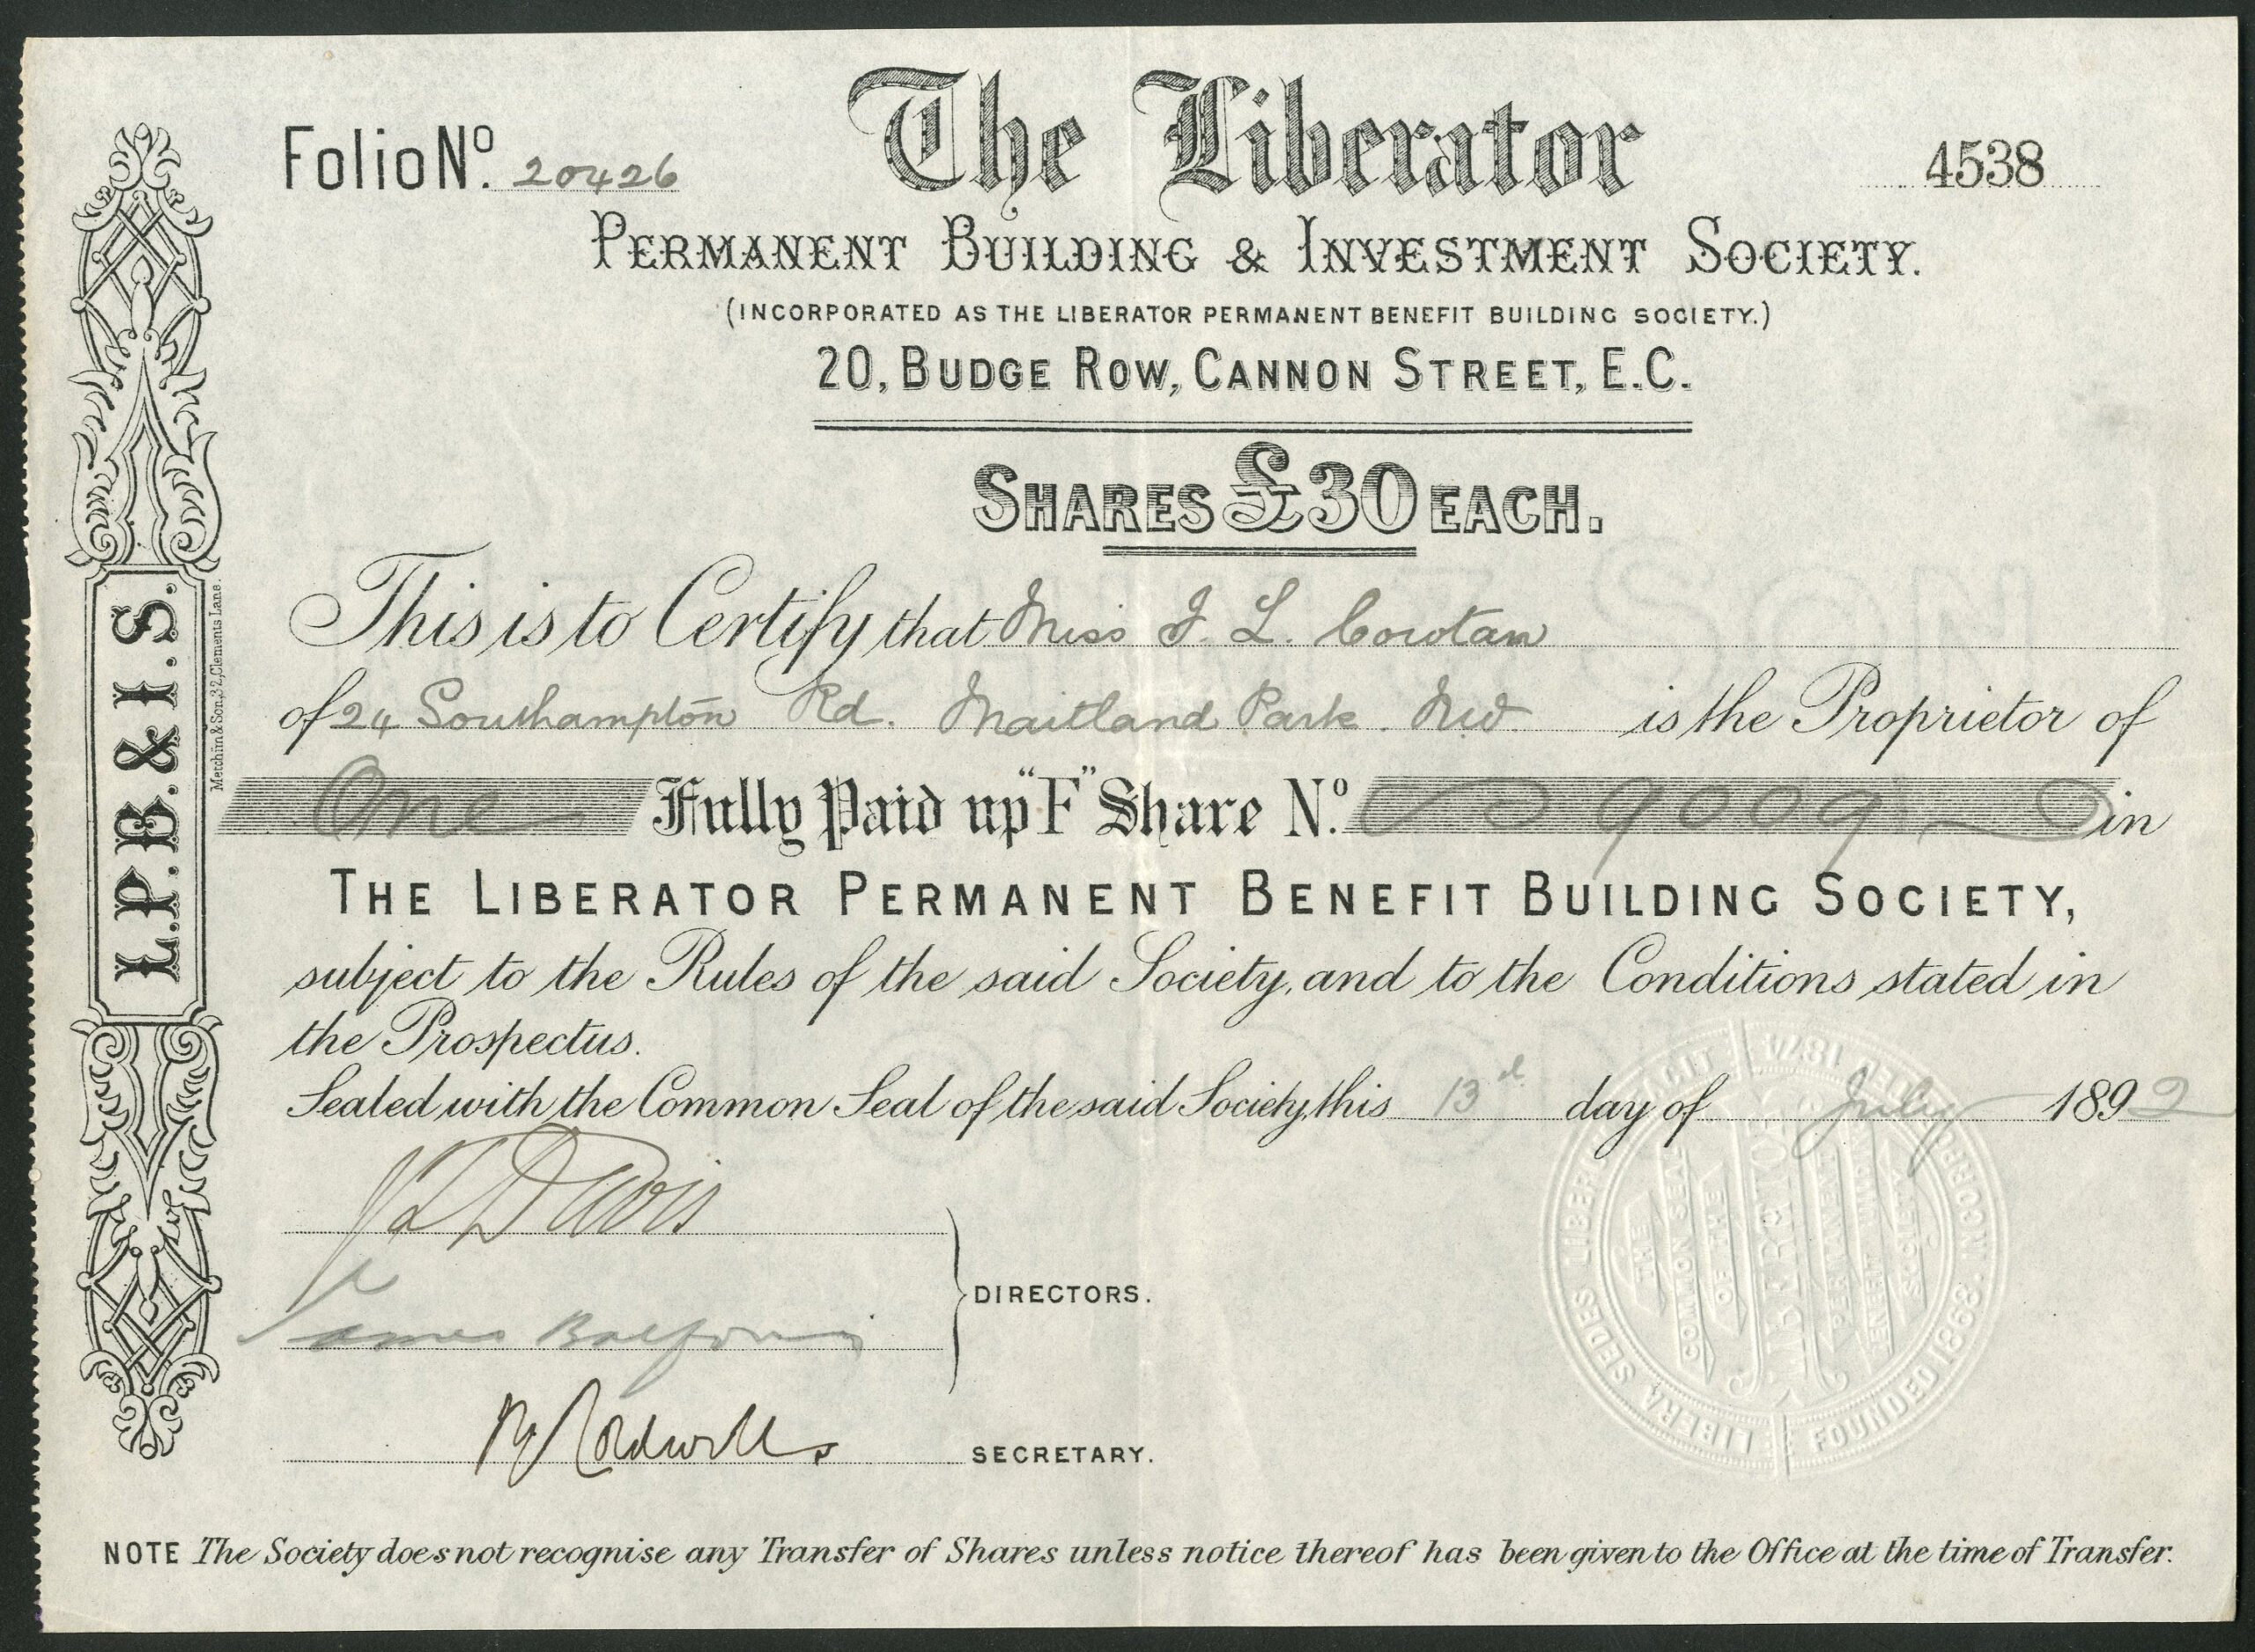 Folio No. 20426
The Liberator
4538
PERMANENT BUILDING & INVESTMENT SOCIETY.
(INCORPORATED AS THE LIBERATOR PERMANENT BENEFIT BUILDING SOCIETY.)
20, BUDGE ROW, CANNON STREET, E.C.
SHARES £30 EACH.
This is to Certify that Miss J. L. Cowtan
of 24 Southampton Rd. Maitland Park. N.W. is the Proprietor of
One Fully Paid up "F" Share No. 9009 in
THE LIBERATOR PERMANENT BENEFIT BUILDING SOCIETY,
subject to the Rules of the said Society, and to the Conditions stated in
the Prospectus.
Sealed with the Common Seal of the said Society, this 13th day of July 1892
Davis
James Balfour
DIRECTORS.
SECRETARY.
NOTE The Society does not recognise any Transfer of Shares unless notice thereof has been given to the Office at the time of Transfer.
L.P.B. & I.S.
Metchim & Son, 32, Clements Lane.
LIBERA SEDES LIBERUM FACIT
INCORPORATED 1874
FOUNDED 1868
THE
COMMON SEAL
OF THE
LIBERATOR
PERMANENT
BENEFIT BUILDING
SOCIETY